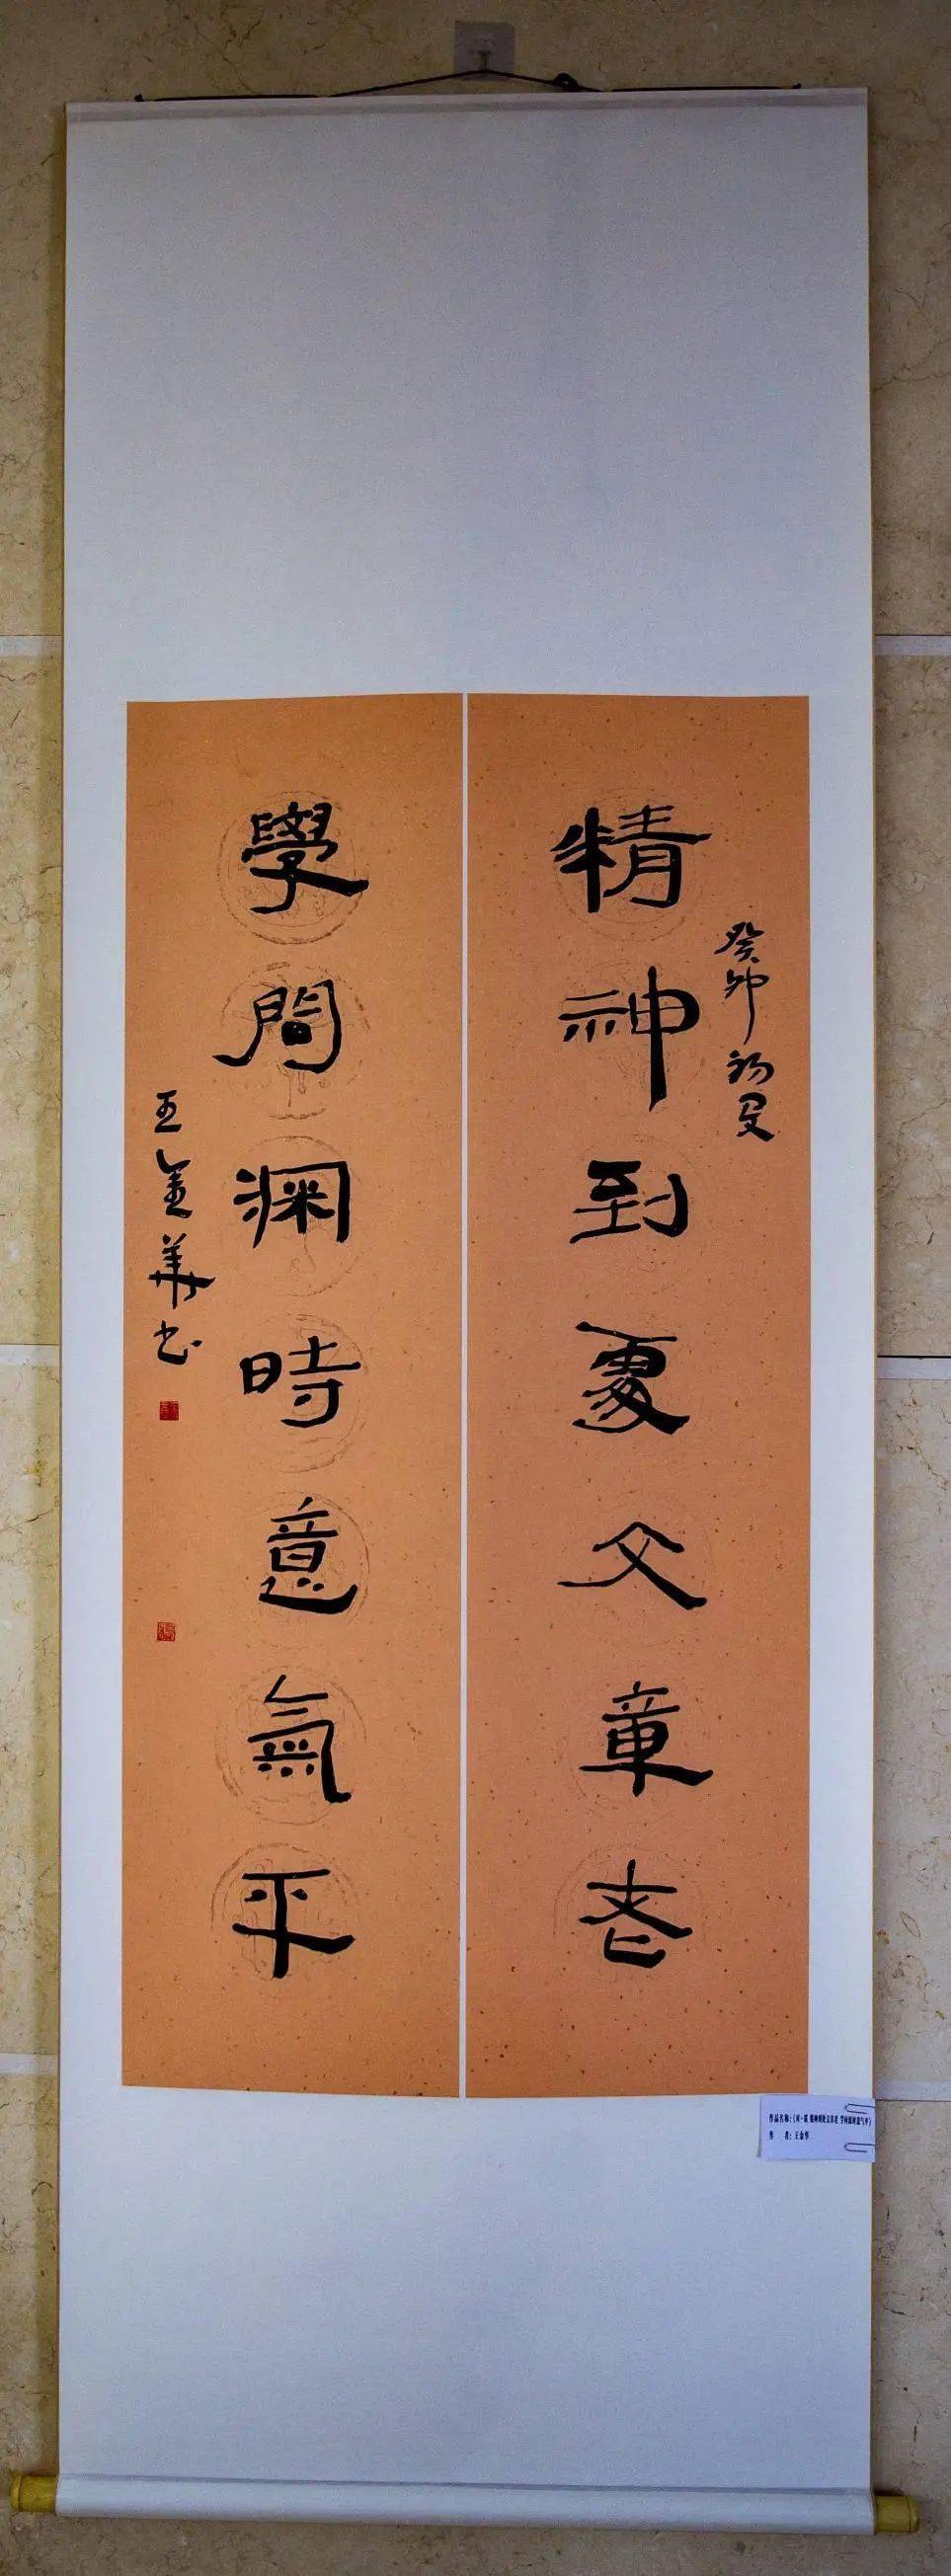 癸卯初夏
精神到處文章老
學問渊時意氣平
王金華书
作品名称：
精神到处文章老 学问渊时意气平》
作 者：王金华